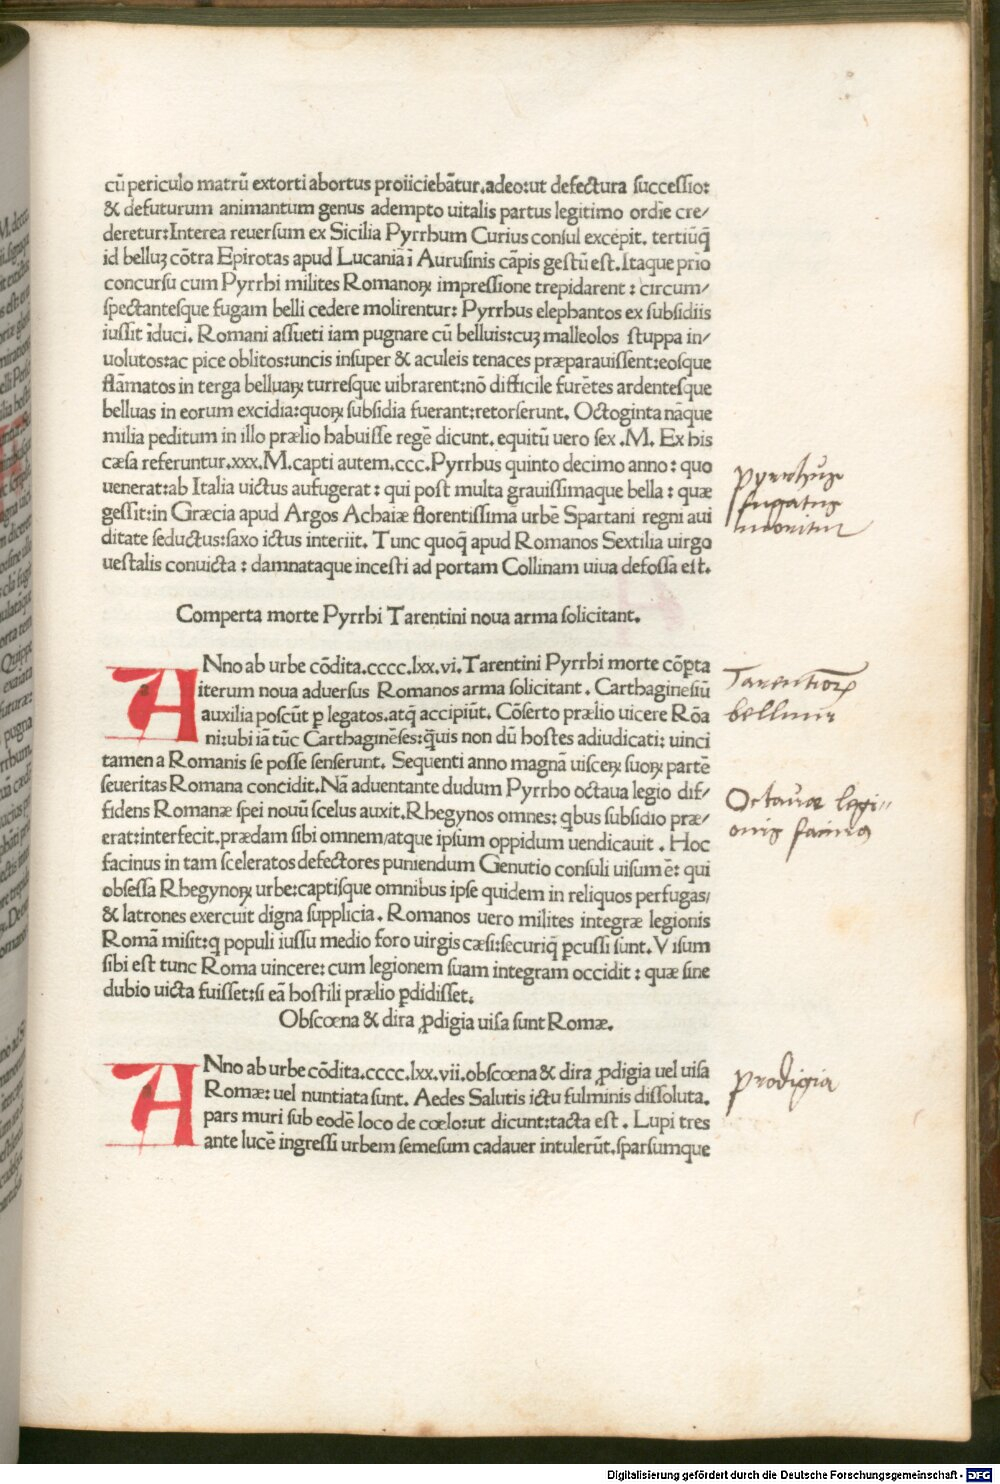 cū periculo matrū extorti abortus proiiciebātur.adeo:ut defectura successio:
& defuturum animantum genus adempto uitalis partus legitimo ordīe cre/
deretur:Interea reuersum ex Sicilia Pyrrhum Curius consul excepit. tertiūq̄
id belluꝫ cōtra Epirotas apud Lucaniā ī Aurusinis cāpis gestū est.Itaque prīo
concursu cum Pyrrhi milites Romanoꝝ impressione trepidarent : circum/
spectantesque fugam belli cedere molirentur: Pyrrhus elephantos ex subsidiis
iussit īduci. Romani assueti iam pugnare cū belluis:cuꝫ malleolos stuppa in/
uolutos:ac pice oblitos:uncis insuper & aculeis tenaces præparauissent:eosque
flāmatos in terga belluaꝝ turresque uibrarent:nō difficile furētes ardentesque
belluas in eorum excidia:quoꝝ subsidia fuerant:retorserunt. Octoginta nāque
milia peditum in illo prælio habuisse regē dicunt. equitū uero sex .M. Ex his
cæsa referuntur.xxx.M.capti autem.ccc.Pyrrhus quinto decimo anno : quo
uenerat:ab Italia uictus aufugerat : qui post multa grauissimaque bella : quæ
gessit:in Græcia apud Argos Achaiæ florentissimā urbē Spartani regni aui
ditate seductus:saxo ictus interiit. Tunc quoq̄ apud Romanos Sextilia uirgo
uestalis conuicta : damnataque incesti ad portam Collinam uiua defossa est.
pyrrhus
fugatus
moritur
Comperta morte Pyrrhi Tarentini noua arma solicitant.
ANno ab urbe cōdita.cccc.lxx.vi.Tarentini Pyrrhi morte cōpta
iterum noua aduersus Romanos arma solicitant . Carthaginesiū
auxilia poscūt ꝑ legatos.atq̄ accipiūt. Cōserto prælio uicere Rōa
ni:ubi iā tūc Carthaginēses:q̄uis non dū hostes adiudicati: uinci
tamen a Romanis se posse senserunt. Sequenti anno magnā uisceꝝ suoꝝ partē
seueritas Romana concidit. Nā aduentante dudum Pyrrho octaua legio dif/
fidens Romanæ spei nouū scelus auxit.Rhegynos omnes: qbus subsidio præ/
erat:interfecit.prædam sibi omnem/atque ipsum oppidum uendicauit . Hoc
facinus in tam sceleratos defectores puniendum Genutio consuli uisum ē: qui
obsessa Rhegynoꝝ urbe:captisque omnibus ipse quidem in reliquos perfugas/
& latrones exercuit digna supplicia. Romanos uero milites integræ legionis
Romā misit:q populi iussu medio foro uirgis cæsi:securiq̄ ꝑcussi sunt. Visum
sibi est tunc Roma uincere: cum legionem suam integram occidit : quæ sine
dubio uicta fuisset:si eā hostili prælio ꝑdidisset.
Tarentinoꝝ
bellum
Octauæ legi=
onis
Obscœna & dira ꝓdigia uisa sunt Romæ.
ANno ab urbe cōdita.cccc.lxx.vii.obscœna & dira ꝓdigia uel uisa
Romæ: uel nuntiata sunt. Aedes Salutis ictu fulminis dissoluta.
pars muri sub eodē loco de cœlo:ut dicunt:tacta est . Lupi tres
ante lucē ingressi urbem semesum cadauer intulerūt.sparsumque
prodigia
Digitalisierung gefördert durch die Deutsche Forschungsgemeinschaft - DFG